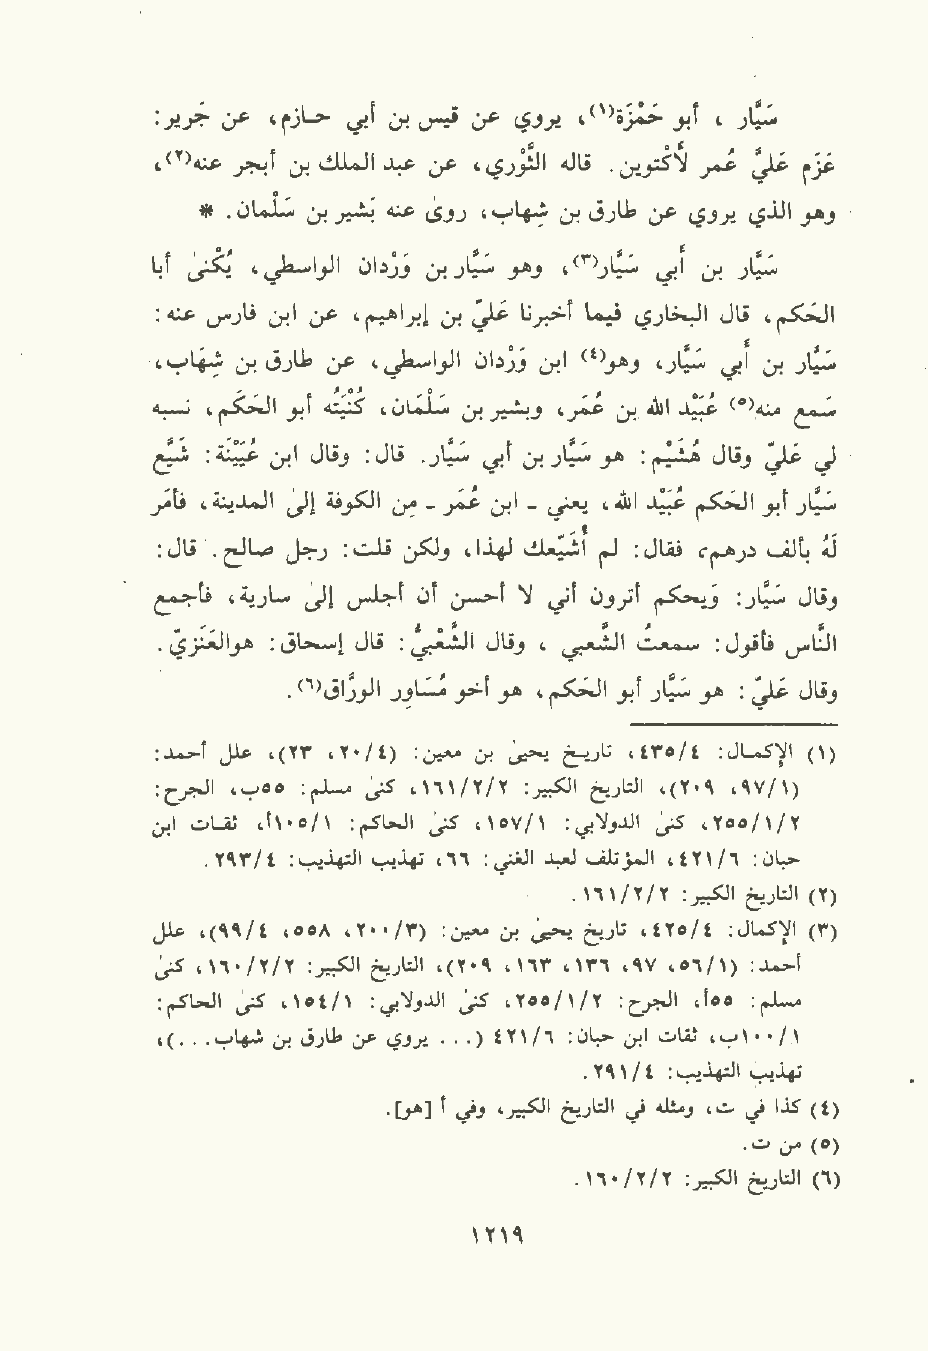 سَيَّار ، أبو حَمْزَة(١)، يروي عن قيس بن أبي حـازم، عن جَرير:
عَزم عليَّ عُمر لأَكْتوين. قاله الثَّوْري، عن عبد الملك بن أبجر عنه(٢)،
وهو الذي يروي عن طارق بن شِهاب، روى عنه بَشير بن سَلْمان. *
سَيَّار بن أَبي سَيَّار(٣)، وهو سَيَّار بن وَرْدان الواسطي، يُكْنىٰ أبا
الحَكم، قال البخاري فيما أخبرنا عَليّ بن إبراهيم، عن ابن فارس عنه:
سَيَّار بن أَبي سَيَّار، وهو(٤) ابن وَرْدان الواسطي، عن طارق بن شِهَاب،
سَمع منه(٥) عُبَيْد الله بن عُمَر، وبشير بن سَلْمَان، كُنْيَتُه أبو الحَكَم، نسبه
لي عَليّ وقال هُشَيْم: هو سَيَّار بن أبي سَيَّار. قال: وقال ابن عُيَيْنَة: شَيَّع
سَيَّار أبو الحَكم عُبَيْد الله، يعني - ابن عُمَر - من الكوفة إلىٰ المدينة، فأمَر
لَه بألف درهم، فقال: لم أُشَيِّعك لهذا، ولكن قلت: رجل صالح. قال:
وقال سَيَّار: وَيحكم أترون أني لا أحسن أن أجلس إلىٰ سارية، فأجمع
النَّاس فأقول: سمعتُ الشَّعبي ، وقال الشَّعْبيُّ: قال إسحاق: هوالعَنَزيّ.
وقال عَليّ: هو سَيَّار أبو الحَكم، هو أخو مُسَاوِر الورَّاق(٦).
(١) الإِكمـال: ٤٣٥/٤، تاريخ يحيىٰ بن معين: (٢٠/٤، ٢٣)، علل أحمد:
(٩٧/١، ٢٠٩)، التاريخ الكبير: ١٦١/٢/٢، كنىٰ مسلم: ٥٥ب، الجرح:
٢٥٥/١/٢، كنىٰ الدولابي: ١٥٧/١، كنىٰ الحاكم: ١٠٥/١أ، ثقـات ابن
حبان: ٤٢١/٦، المؤتلف لعبد الغني: ٦٦، تهذيب التهذيب: ٢٩٣/٤.
(٢) التاريخ الكبير: ١٦١/٢/٢.
(٣) الإِكمال: ٤٢٥/٤، تاريخ يحيىٰ بن معين: (٢٠٠/٣، ٥٥٨، ٩٩/٤)، علل
أحمد: (٥٦/١، ٩٧، ١٣٦، ١٦٣، ٢٠٩)، التاريخ الكبير: ١٦٠/٢/٢، كنىٰ
مسلم: ٥٥أ، الجرح: ٢٥٥/١/٢، كنىٰ الدولابي: ١٥٤/١، كنىٰ الحاكم:
١٠٠/١ب، ثقات ابن حبان: ٤٢١/٦ (... يروي عن طارق بن شهاب...)،
تهذيب التهذيب: ٢٩١/٤.
(٤) كذا في ت، ومثله في التاريخ الكبير، وفي أ [هو].
(٥) من ت.
(٦) التاريخ الكبير: ١٦٠/٢/٢.
١٢١٩